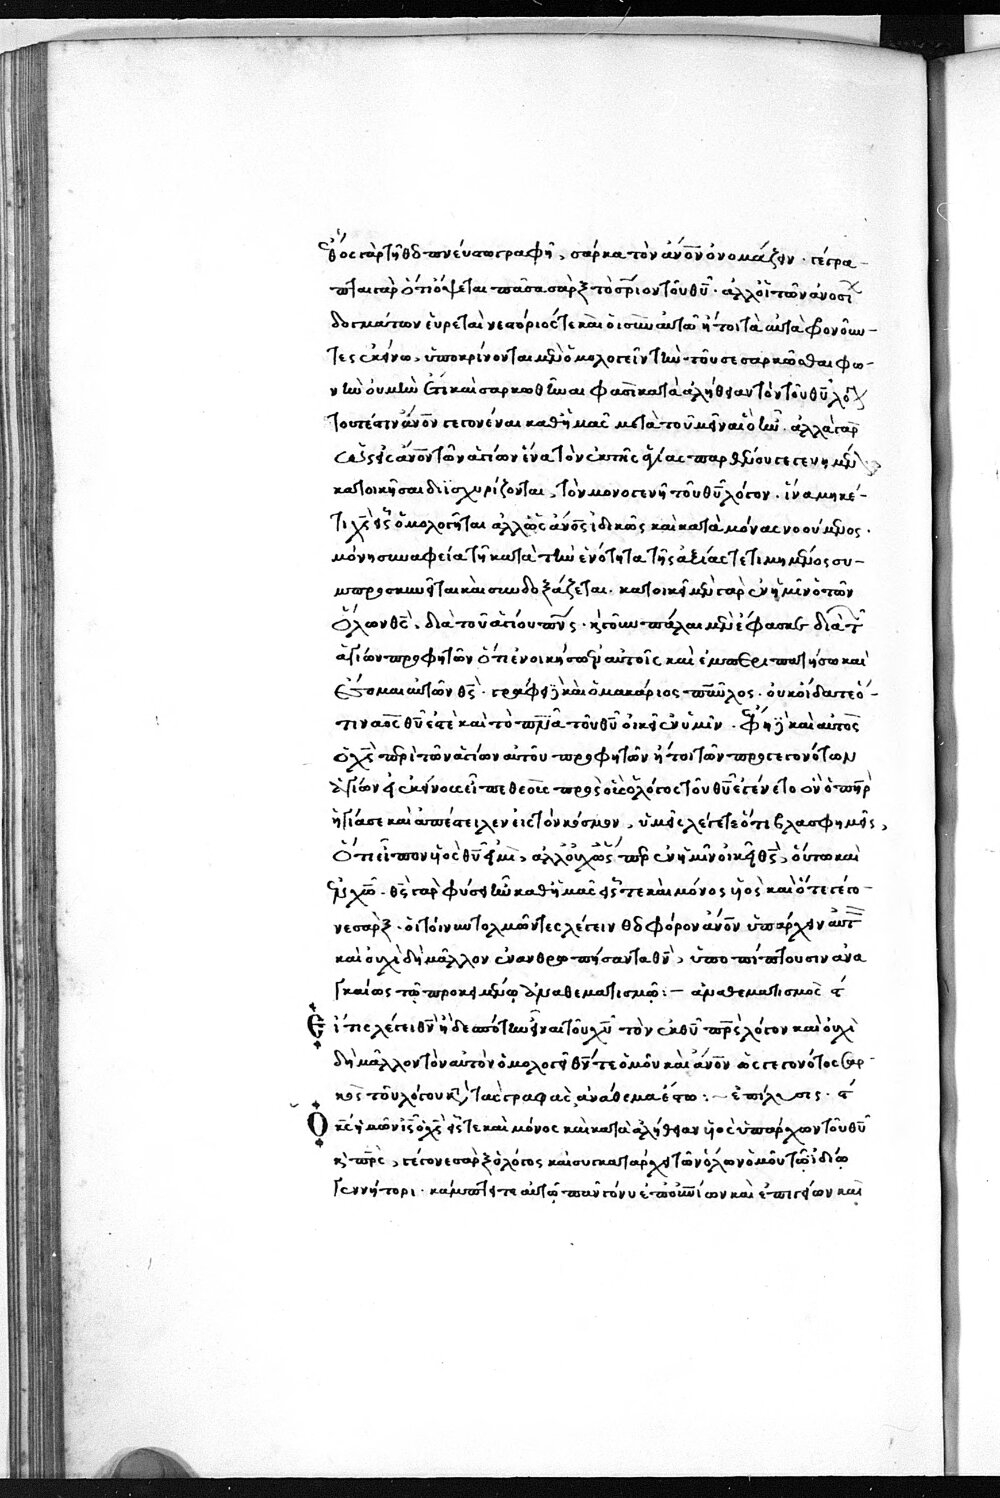 ἔθος γὰρ τῇ θεοπνεύστω γραφῇ, σάρκα τὸν ἄνον ὀνομάζειν · γέγρα-
πται γὰρ ὅτι ὄψεται πᾶσα σὰρξ τὸ σριον τοῦ θυ · ἀλλ' οἱ τῶν ἀνοσί
δογμάτων εὑρεταὶ νεστόριός τε καὶ οἱ σὺν αὐτῶ ἤτοι τὰ αὐτὰ φρονοῦν-
τες ἐκείνω, ὑποκρίνονται μὲν ὁμολογεῖν τὴν τοῦ σεσαρκῶσθαι φω-
νὴν οὐ μὴν ἔτι καὶ σαρκωθῆναι φασὶ κατὰ ἀλήθειαν τὸν τοῦ θυ λόγ
τουτέστιν ἄνον γεγονέναι καθ' ἡμᾶς μετὰ τοῦ μεῖναι ὃ ἦν · ἀλλὰ γὰρ
ὡς εἰς ἄνον τῶν ἁγίων ἕνα τὸν ἐκ τῆς ἁγίας παρθένου γεγενημέν
κατοικῆσαι διϊσχυρίζονται, τὸν μονογενῆ τοῦ θυ λόγον · ἵνα μηκέ-
τι χς εἷς ὁμολογῆται ἀλλ' ὡς ἄνος ἰδικῶς καὶ κατὰ μόνας νοούμενος ·
μόνη συναφεία τῆ κατὰ τὴν ἑνότητα τῆς ἀξίας τετιμημένος συ-
μπροσκυνεῖται καὶ συνδοξάζεται · κατοικεῖ μὲν γὰρ ἐν ἡμῖν ὁ τῶν
ὅλων θς, διὰ τοῦ ἁγίου πνς · καὶ γοῦν πάλαι μὲν ἔφασκε διὰ τ
ἁγίων προφητῶν ὅτι ἐνοικήσω ἐν αὐτοῖς καὶ ἐμπεριπατήσω καὶ
ἔσομαι αὐτῶν θς · γράφει δὲ καὶ ὁ μακάριος παῦλος · οὐκ οἴδατε ὅ-
τι ναὸς θυ ἐστὲ καὶ τὸ πνα τοῦ θυ οἰκεῖ ἐν ὑμῖν · ἔφη δὲ καὶ αὐτὸς
ὁ χς περὶ τῶν ἁγίων αὐτοῦ προφητῶν ἤτοι τῶν προγεγονότων
ἁγίων εἰ ἐκείνους εἶπε θεοὺς πρὸς οὓς ὁ λόγος τοῦ θυ ἐγένετο ὃν ὁ πηρ
ἡγίασε καὶ ἀπέστειλεν εἰς τὸν κόσμον, ὑμεῖς λέγετε ὅτι βλασφημεῖς,
ὅτι εἶπον υἱὸς θυ εἰμὶ, ἀλλ' οὐχ ὥσπερ ἐν ἡμῖν οἰκεῖ θς, οὕτω καὶ
ἐν χω · θς γὰρ φύσει ἦν καθ' ἡμᾶς εἷς τε καὶ μόνος υἱὸς καὶ ὅτε γέγο-
νε σὰρξ · οἱ τοίνυν τολμῶντες λέγειν θεοφόρον ἄνον ὑπάρχειν αὐτ
καὶ οὐχὶ δὴ μᾶλλον ἐνανθρωπήσαντα θν, ὑποπίπτουσιν ἀνα
γκαίως τῷ προκειμένω ἀναθεματισμῷ :— ἀναθεματισμὸς ς
Εἴ τις λέγει θν ἢ δεσπότην εἶναι τοῦ χυ τὸν ἐκ θυ πρς λόγον καὶ οὐχὶ
δὴ μᾶλλον τὸν αὐτὸν ὁμολογεῖ θν τε ὁμοῦ καὶ ἄνον ὡς γεγονότος σαρ-
κὸς τοῦ λόγου κατὰ τὰς γραφὰς ἀνάθεμα ἔστω :— ἐπίλυσις · ς
Ὁ κς ἡμῶν ις ὁ χς εἷς τε καὶ μόνος καὶ κατὰ ἀλήθειαν υἱὸς ὑπάρχων τοῦ θυ
καὶ πρς, γέγονε σὰρξ ὁ λόγος καὶ συγκατάρχει τῶν ὅλων ὁμοῦ τῷ ἰδίω
γεννήτορι · κάμπτει τε αὐτῷ πᾶν γόνυ ἐπουνίων καὶ ἐπιγείων καὶ